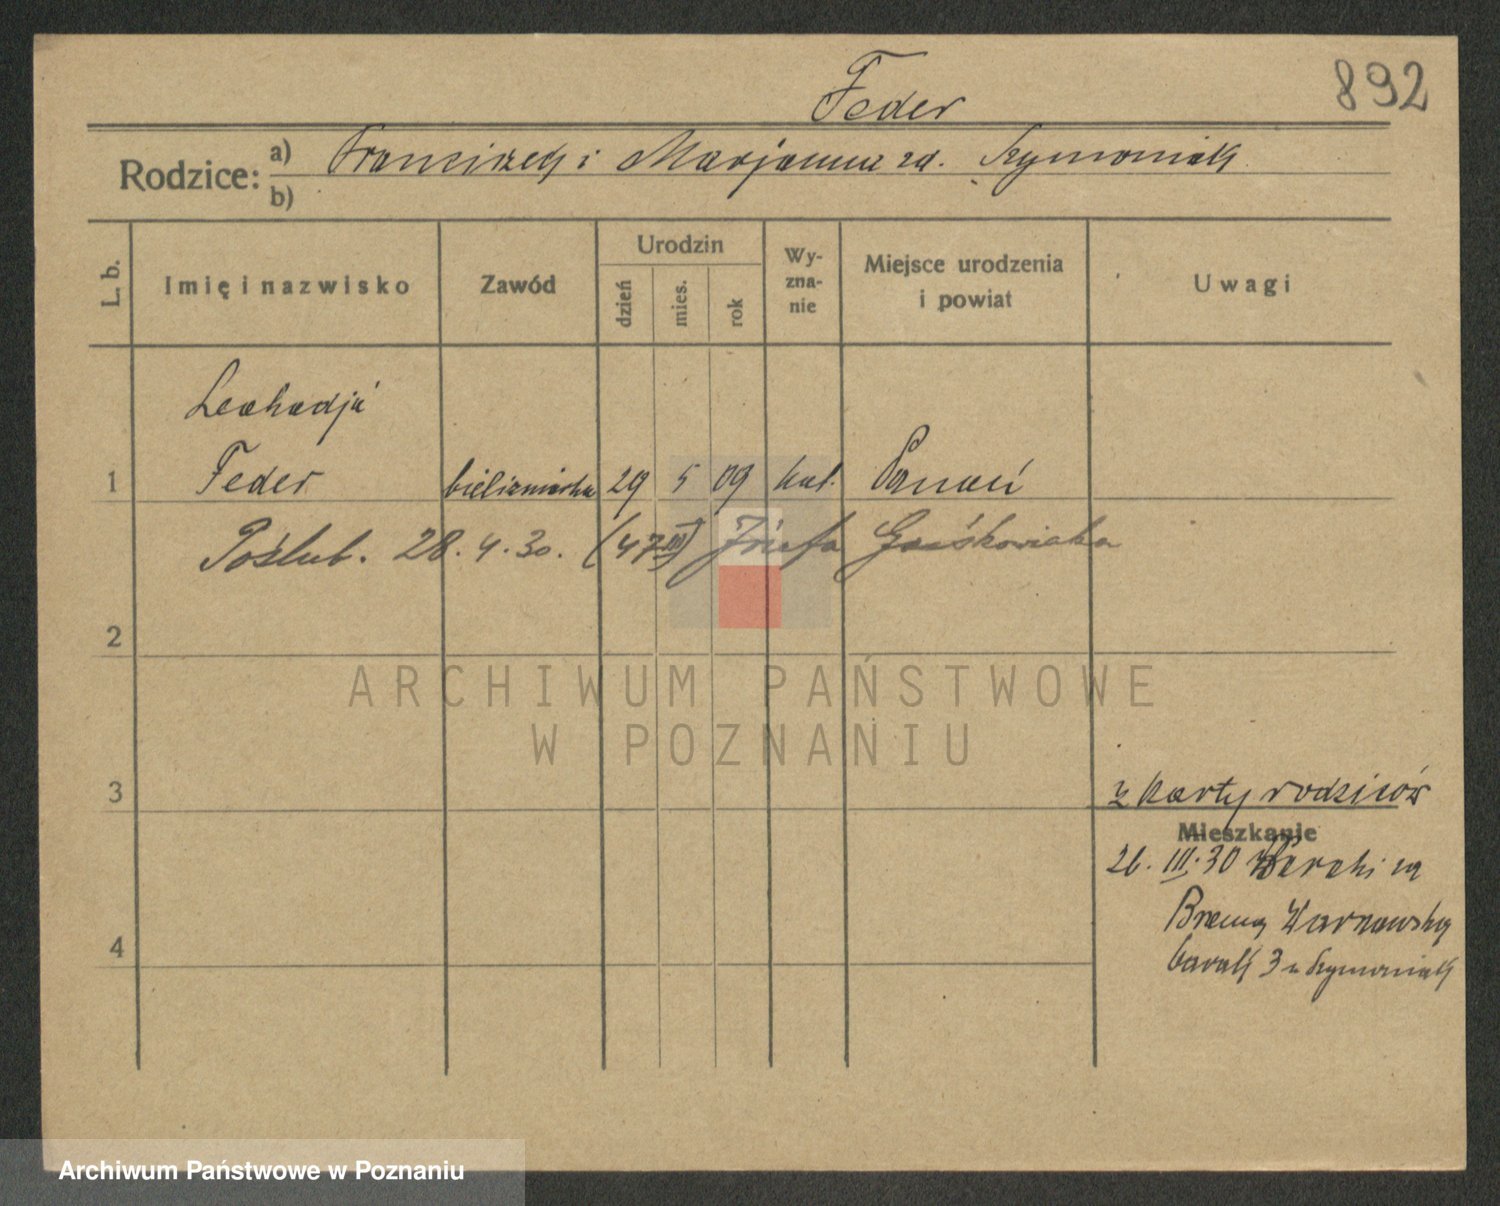 Feder
892
Rodzice: a) Franciszek i Marjanna zd. Szymoniak
b)
L. b.
Imię i nazwisko
Zawód
Urodzin
dzień
mies.
rok
Wy-
zna-
nie
Miejsce urodzenia
i powiat
Uwagi
Leokadja
1 Feder bieliźniarka 29 5 09 kat. Poznań
Poślub. 28.4.30. (47 III) Józefa Gośkowiaka
2
ARCHIWUM PAŃSTWOWE
W POZNANIU
3
z karty rodziców
Mieszkanie
26. III. 30 za
Bramą Warszawską
4
barak 3 u Szymoniak
Archiwum Państwowe w Poznaniu